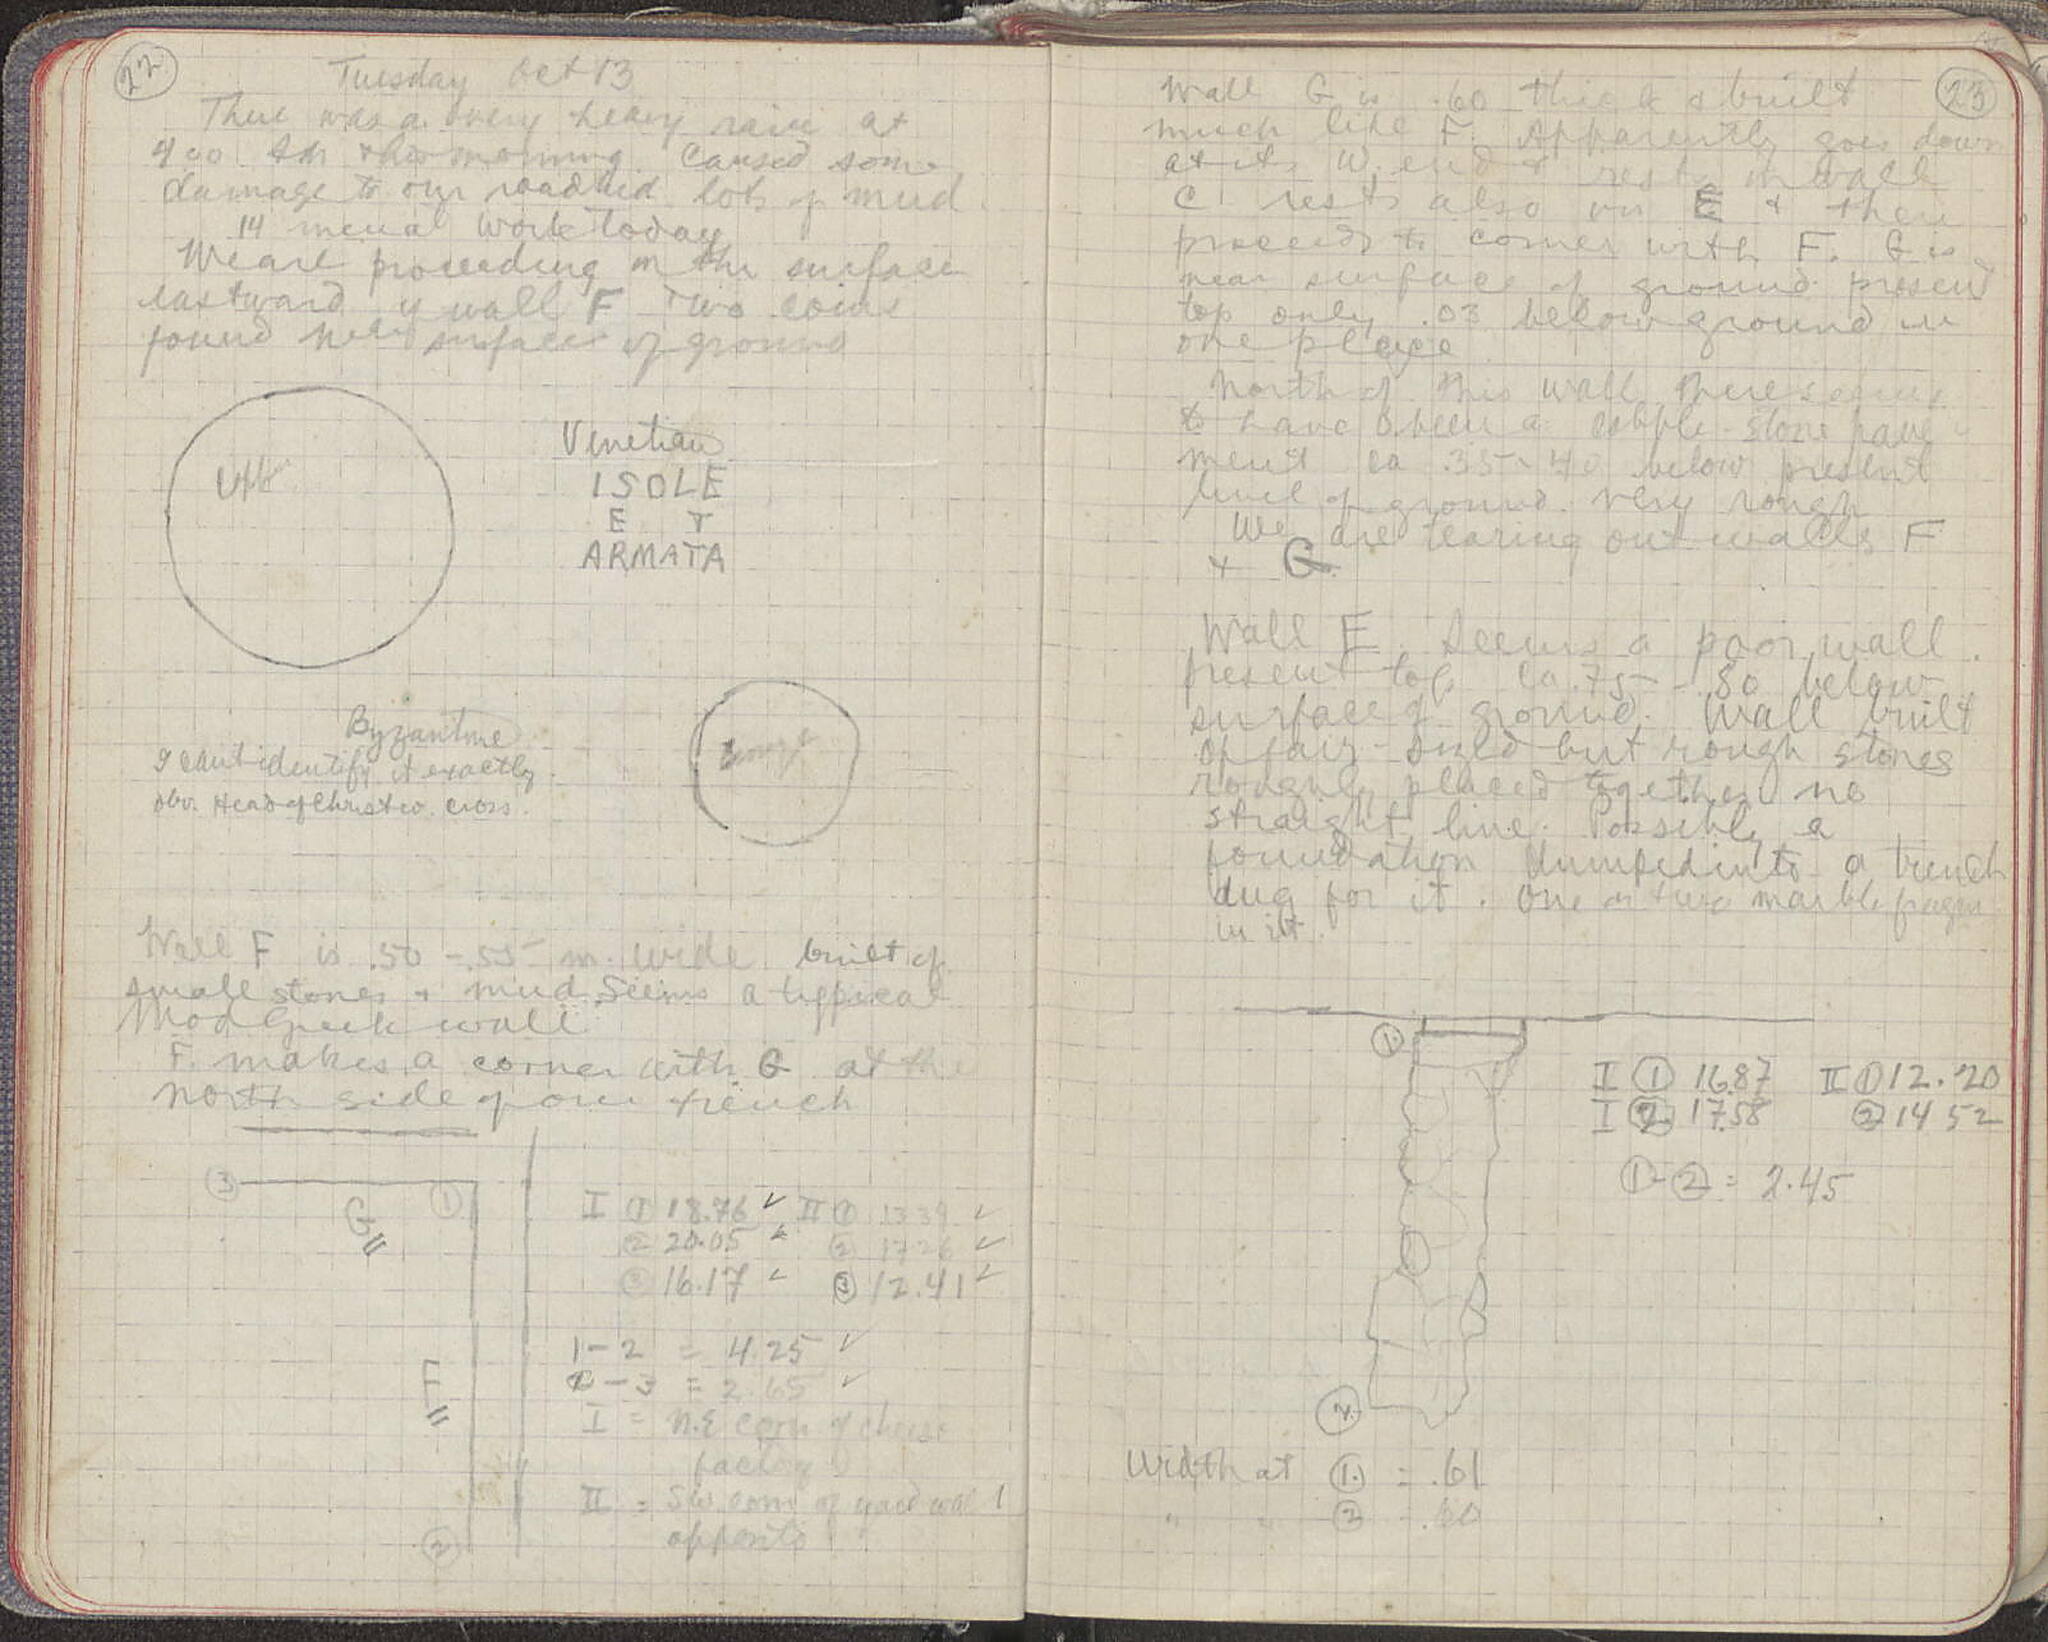 22
Tuesday Oct 13
There was a very heavy rain at
4 00 AM this morning. Caused some
damage to our roadbed. lots of mud.
14 men at work today
We are proceeding on the surface
eastward of wall F Two coins
found near surface of ground
Venetian
ISOLE
E T
ARMATA
Byzantine
I cant identify it exactly.
obv. Head of Christ w. cross.
Wall F is .50 - .55 m. wide built of
small stones + mud. Seems a typical
Mod Greek wall.
F. makes a corner with G at the
north side of our trench
3
1
G
F
2
I ① 18.76 ✓ II ① 13.39 ✓
② 20.05 ✓ ② 17.26 ✓
③ 16.17 ✓ ③ 12.41 ✓
1 - 2 = 4.25 ✓
- 3 = 2.65 ✓
I = N.E corn of cheese
factory
II = SW. corn of yard wall
opposite
23
Wall G is .60 thick & built
much like F. Apparently goes down
at its W. end & rests on wall
C. rests also on E & then
proceeds to corner with F. G is
near surface of ground present
top only .03 below ground in
one place
North of this wall there seems
to have been a cobble-stone pave-
ment ca .35-40 below present
level of ground. very rough
We are tearing out walls F
+ G.
Wall E. Seems a poor wall.
present top ca .75 - .80 below
surface of ground. Wall built
of fair-sized but rough stones
roughly placed together no
straight line. Possibly a
foundation dumped into a trench
dug for it. One or two marble fragm
in it.
①
I ① 16.87 II ① 12.20
I ② 17.58 ② 14 52
①-② = 2.45
②
Width at ① = .61
" " ② = .60